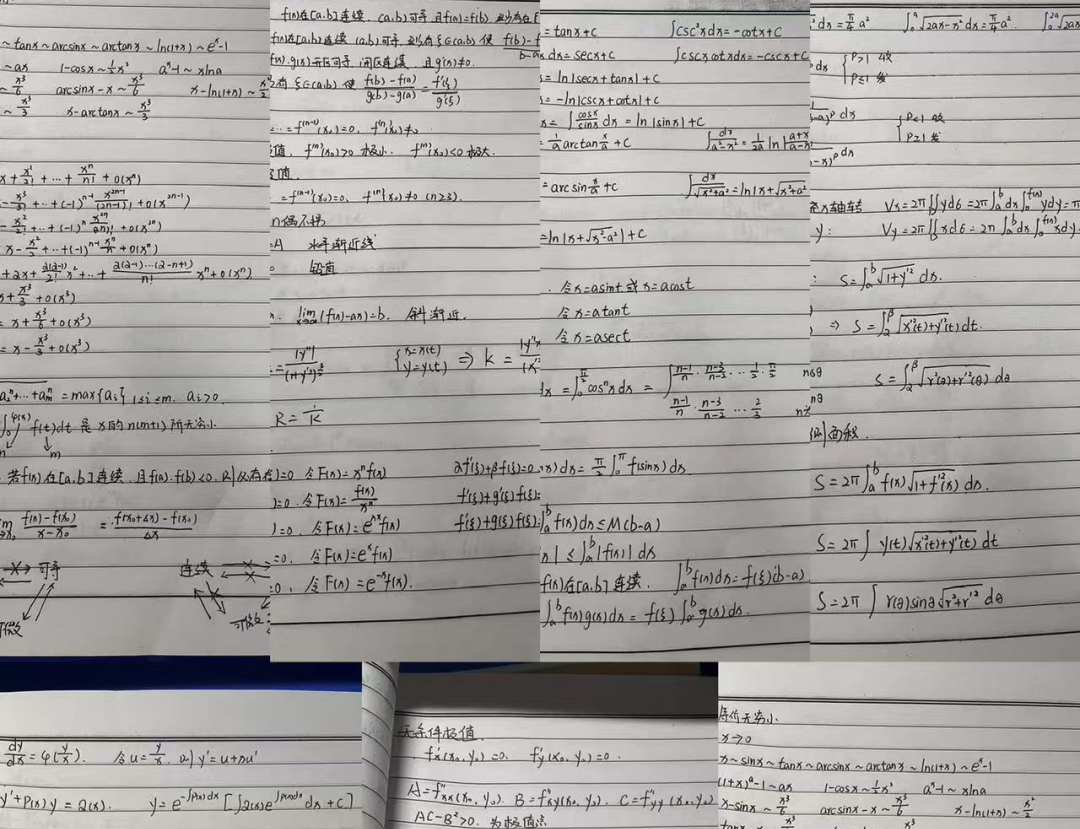 ~tanx~arcsinx~arctanx~ln(1+x)~eˣ-1
~ax 1-cosx~½x² aˣ-1~xlna
~x³/6 arcsinx-x~x³/6 x-ln(1+x)~x²/2
~x³/3 x-arctanx~x³/3
x+x²/2!+…+xⁿ/n!+o(xⁿ)
-x³/3!+…+(-1)ⁿ⁻¹x²ⁿ⁻¹/(2n-1)!+o(x²ⁿ⁻¹)
-x²/2!+…+(-1)ⁿx²ⁿ/(2n)!+o(x²ⁿ)
x-x²/2+…+(-1)ⁿ⁻¹xⁿ/n+o(xⁿ)
+2x+2(2-1)/2!x²+…+2(2-1)…(2-n+1)/n!xⁿ+o(xⁿ)
x+x³/3+o(x³)
=x+x³/6+o(x³)
=x-x³/3+o(x³)
=max{aᵢ} 1≤i≤m, aᵢ>0
∫₀^φ(x) f(t)dt 是x的n(m+1)阶无穷小
n m
若f(x)在[a,b]连续,且f(a)·f(b)<0,则必存在
f(x)-f(x₀)/x-x₀ =f(x₀+Δx)-f(x₀)/Δx
可导 连续
可微
f(x)在[a,b]连续,(a,b)可导,且f(a)=f(b),
f(x)在[a,b]连续,(a,b)可导,则存在ξ∈(a,b)使 f(b)-f
f(x),g(x)开区可导,闭区连续,且g'(x)≠0.
存有ξ∈(a,b)使 f(b)-f(a)/g(b)-g(a)=f'(ξ)/g'(ξ)
…=f⁽ⁿ⁻¹⁾(x₀)=0, f⁽ⁿ⁾(x₀)≠0
值, f⁽ⁿ⁾(x₀)>0 极小, f⁽ⁿ⁾(x₀)<0 极大.
值.
…=f⁽ⁿ⁻¹⁾(x₀)=0, f⁽ⁿ⁾(x₀)≠0 (n≥3).
n偶不拐
=A 水平渐近线
铅直
lim(f(x)-ax)=b. 斜渐近.
=|y''|/(1+y'²)^3/2 {x=x(t) y=y(t) ⇒ k=
R=1/K
=0 令F(x)=xⁿf(x)
)=0, 令F(x)=f(x)/xⁿ
)=0, 令F(x)=e^λx f(x)
=0, 令F(x)=eˣf(x)
=0, 令F(x)=e⁻ˣf(x).
αf'(ξ)+βf(ξ)=0
f'(ξ)+g'(ξ)f(ξ)=
f'(ξ)+g(ξ)f(ξ)=
=tanx+C ∫csc²xdx=-cotx+C
dx=secx+C ∫cscxcotxdx=-cscx+C
=ln|secx+tanx|+C
=-ln|cscx+cotx|+C
=∫cosx/sinx dx=ln|sinx|+C
=1/a arctan x/a+C ∫dx/a²-x²=1/2a ln|a+x/a-x
=arcsin x/a+C ∫dx/√x²+a²=ln|x+√x²+a²
=ln|x+√x²-a²|+C
令x=asint或x=acost
令x=atant
令x=asect
dx=∫₀^π/2 cosⁿxdx={n-1/n·n-3/n-2…½·π/2
n-1/n·n-3/n-2…2/3
x)dx=π/2∫₀^π f(sinx)dx
∫ₐᵇf(x)dx≤M(b-a)
x|≤∫ₐᵇ|f(x)|dx
f(x)在[a,b]连续, ∫ₐᵇf(x)dx=f(ξ)(b-a)
∫ₐᵇf(x)g(x)dx=f(ξ)∫ₐᵇg(x)dx.
²dx=π/4a² ∫₀ᵃ√2ax-x²dx=π/4a². ∫₀²ᵃ√2ax
dx {P>1 收
P≤1 发
dx {P<1 收
P≥1 发
绕x轴转 Vx=2π∬ydσ=2π∫ₐᵇdx∫₀^f(x)ydy=π
y: Vy=2π∬xdσ=2π∫ₐᵇdx∫₀^f(x)xdy
S=∫ₐᵇ√1+y'²dx.
⇒ S=∫₂^β√x'²(t)+y'²(t)dt.
S=∫₂^β√r²(θ)+r'²(θ)dθ
侧面积
S=2π∫ₐᵇf(x)√1+f'²(x)dx.
S=2π∫y(t)√x'²(t)+y'²(t)dt
S=2π∫r(θ)sinθ√r²+r'²dθ
dy/dx=φ(y/x). 令u=y/x, 则y'=u+xu'
y'+P(x)y=Q(x). y=e^-∫P(x)dx[∫Q(x)e^∫P(x)dx dx+C]
无条件极值
f'x(x₀,y₀)=0, f'y(x₀,y₀)=0.
A=f''xx(x₀,y₀). B=f''xy(x₀,y₀). C=f''yy(x₀,y₀)
AC-B²>0. 为极值点
等价无穷小.
x→0
x~sinx~tanx~arcsinx~arctanx~ln(1+x)~eˣ-1
(1+x)ᵃ-1~ax 1-cosx~½x² aˣ-1~xlna
x-sinx~x³/6 arcsinx-x~x³/6 x-ln(1+x)~x²/2